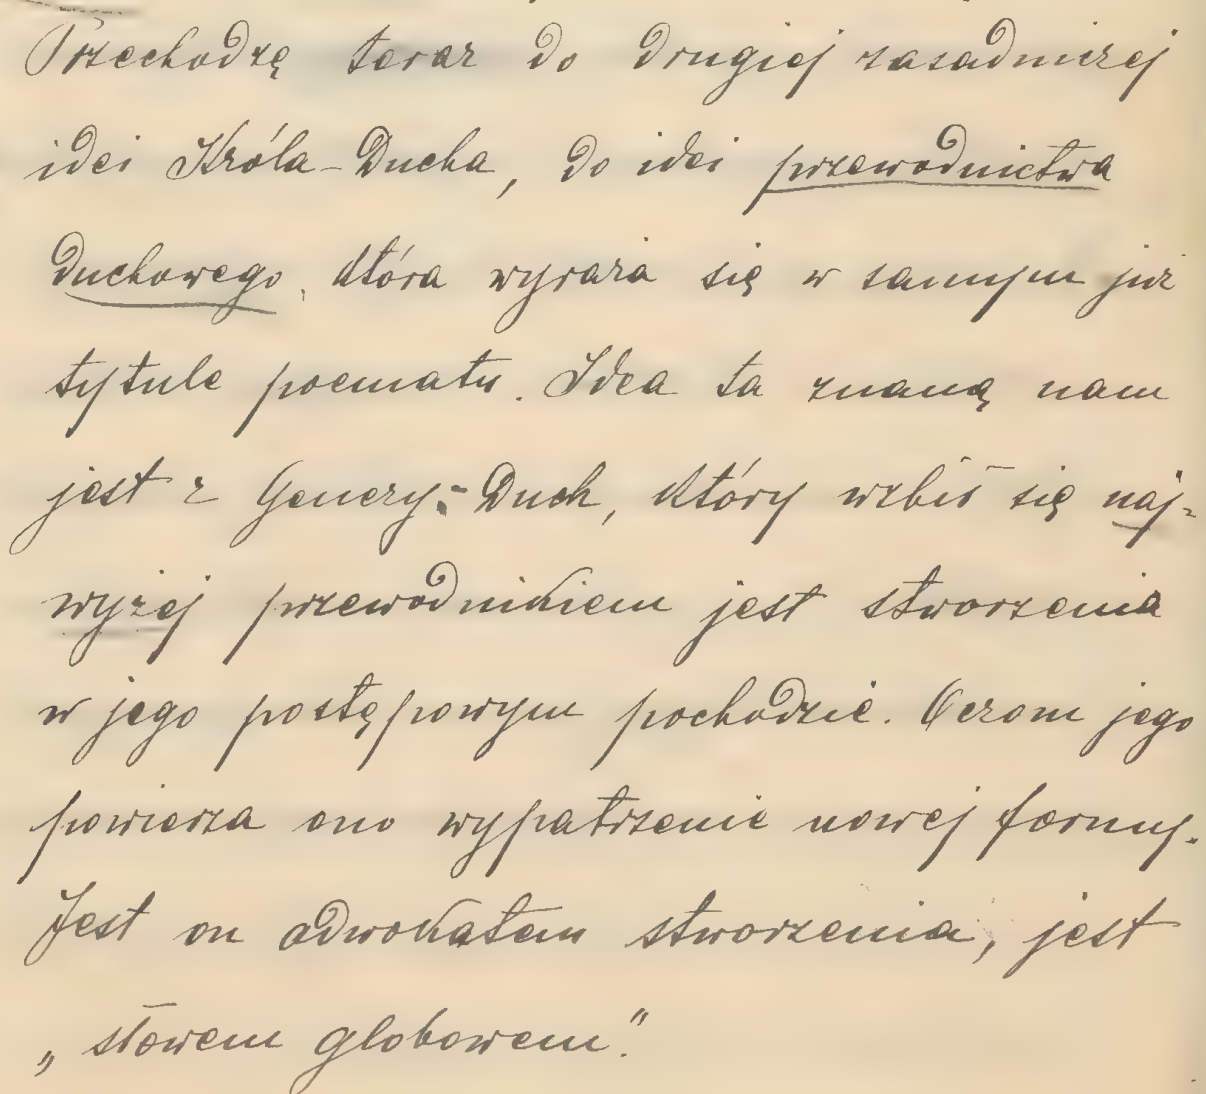 Przechodzę teraz do drugiej zasadniczej
idei Króla-Ducha, do idei przewodnictwa
duchowego, która wyraża się w samym już
tytule poematu. Idea ta znaną nam
jest z Genezy: Duch, który wzbił się naj-
wyżej przewodnikiem jest stworzenia
w jego postępowym pochodzie. Oczom jego
powierza ono wypatrzenie nowej formy.
Jest on adwokatem stworzenia, jest
„słowem globowem".